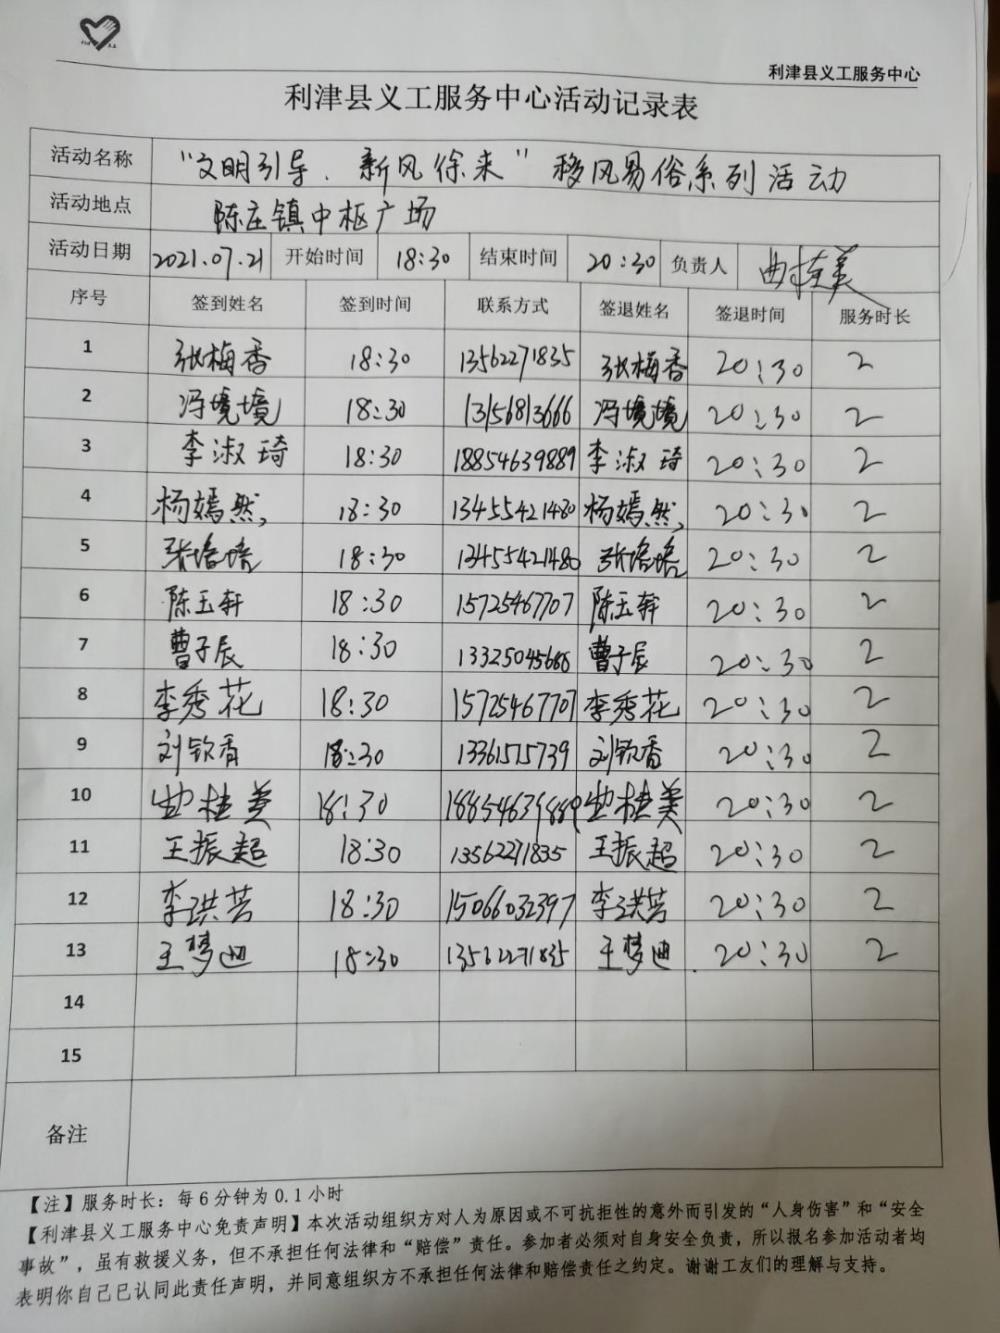 利津县义工服务中心
利津县义工服务中心活动记录表
活动名称 “文明引导、新风徐来”移风易俗系列活动
活动地点 陈庄镇中枢广场
活动日期 2021.07.21 开始时间 18:30 结束时间 20:30 负责人 曲桂美
序号 签到姓名 签到时间 联系方式 签退姓名 签退时间 服务时长
1 张梅香 18:30 13562271835 张梅香 20:30 2
2 冯境境 18:30 13156813666 冯境境 20:30 2
3 李淑琦 18:30 18854639889 李淑琦 20:30 2
4 杨嫣然, 18:30 13455421480 杨嫣然, 20:30 2
5 张培培 18:30 13455421480 张培培 20:30 2
6 陈玉轩 18:30 15725467707 陈玉轩 20:30 2
7 曹子辰 18:30 13325045688 曹子辰 20:30 2
8 李秀花 18:30 15725467707 李秀花 20:30 2
9 刘钦香 18:30 13361575739 刘钦香 20:30 2
10 曲桂美 18:30 18854639889 曲桂美 20:30 2
11 王振超 18:30 13562271835 王振超 20:30 2
12 李洪芳 18:30 15066032397 李洪芳 20:30 2
13 王梦迪 18:30 13562271835 王梦迪 20:30 2
14
15
备注
【注】服务时长：每6分钟为0.1小时
【利津县义工服务中心免责声明】本次活动组织方对人为原因或不可抗拒性的意外而引发的“人身伤害”和“安全
事故”，虽有救援义务，但不承担任何法律和“赔偿”责任。参加者必须对自身安全负责，所以报名参加活动者均
表明你自己已认同此责任声明，并同意组织方不承担任何法律和赔偿责任之约定。谢谢工友们的理解与支持。